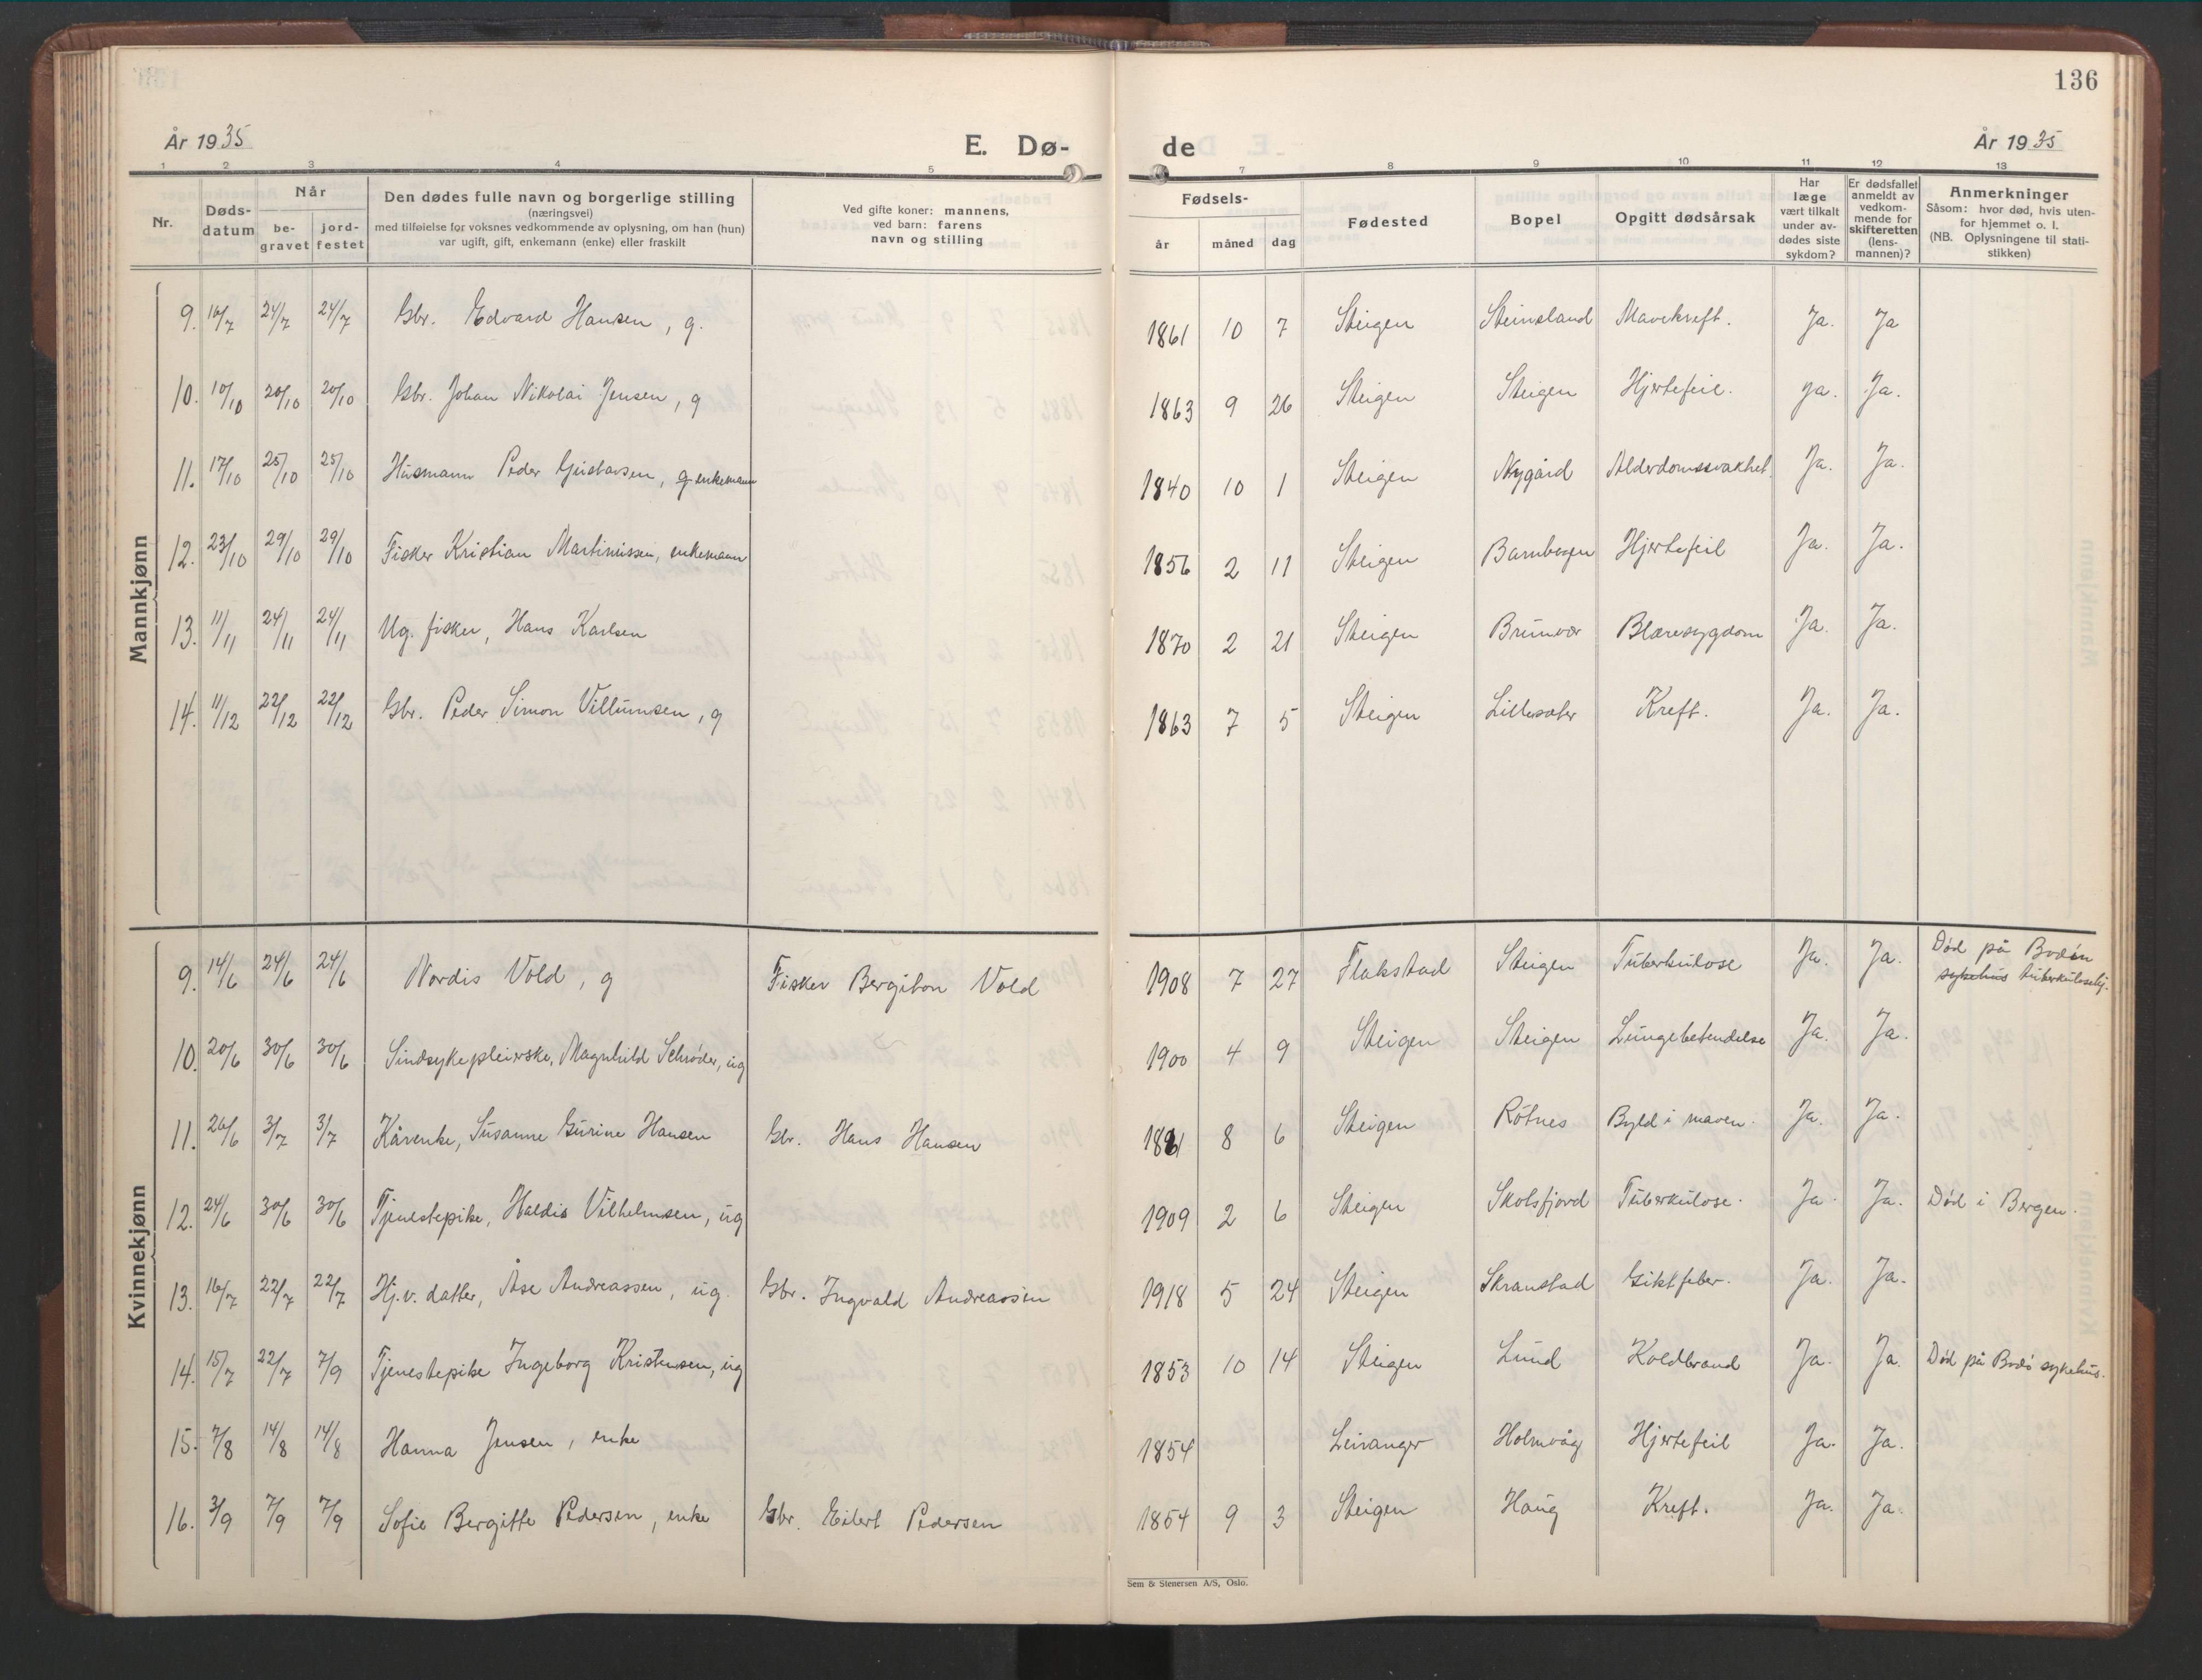 136
År 1935
E. Dø-
de
År 1935
1 2 3 4 5 7 8 9 10 11 12 13
Nr.
Døds-
datum
Når
be-
gravet
jord-
festet
Den dødes fulle navn og borgerlige stilling
(næringsvei)
med tilføielse for voksnes vedkommende av oplysning, om han (hun)
var ugift, gift, enkemann (enke) eller fraskilt
Ved gifte koner: mannens,
ved barn: farens
navn og stilling
Fødsels-
år måned dag
Fødested
Bopel
Opgitt dødsårsak
Har
læge
vært tilkalt
under av-
dødes siste
sykdom?
Er dødsfallet
anmeldt av
vedkom-
mende for
skifteretten
(lens-
mannen)?
Anmerkninger
Såsom: hvor død, hvis uten-
for hjemmet o. l.
(NB. Oplysningene til stati-
stikken)
Mannkjønn
9. 16/7 24/7 24/7 Gbr. Edvard Hansen, g. 1861 10 7 Steigen Steinsland Mavekreft. Ja. Ja
10. 10/10 20/10 20/10 Gbr. Johan Nikolai Jensen, g 1863 9 26 Steigen Steigen Hjertefeil. Ja. Ja.
11. 17/10 25/10 25/10 Husmann Peder Gustavsen, g enkemann 1840 10 1 Steigen Nygård Alderdomssvakhet. Ja. Ja.
12. 23/10 29/10 29/10 Fisker Kristian Martinussen, enkemann 1856 2 11 Steigen Barnbogen Hjertefeil Ja. Ja.
13. 11/11 24/11 24/11 Ug. fisker, Hans Karlsen 1870 2 21 Steigen Brunvær Blæresygdom Ja. Ja.
14. 11/12 22/12 22/12 Gbr. Peder Simon Villumsen, g 1863 7 5 Steigen Lillesæter Kreft. Ja. Ja.
Kvinnekjønn
9. 14/6 24/6 24/6 Nordis Vold, g Fisker Bergiton Vold 1908 7 27 Flakstad Steigen Tuberkulose Ja. Ja. Død på Bodin
sykehus tuberkulosehj.
10. 20/6 30/6 30/6 Sindsykepleierske, Magnhild Schrøder, ug 1900 4 9 Steigen Steigen Lungebetendelse Ja. Ja.
11. 26/6 3/7 3/7 Kårenke, Susanne Gurine Hansen Gbr. Hans Hansen 8 6 Steigen Rötnes Byld i maven. Ja. Ja.
12. 24/6 30/6 30/6 Tjenestepike, Haldis Vilhelmsen, ug 1909 2 6 Steigen Skolsfjord Tuberkulose. Ja. Ja. Død i Bergen.
13. 16/7 22/7 22/7 Hj.v. datter, Åse Andreassen, ug. Gbr. Ingvald Andreassen 1918 5 24 Steigen Skranstad Giktfeber. Ja. Ja.
14. 15/7 22/7 7/9 Tjenestepike Ingeborg Kristensen, ug 1853 10 14 Steigen Lund Koldbrand Ja. Ja. Død på Bodø sykehus.
15. 7/8 14/8 14/8 Hanna Jensen, enke 1854 Leiranger Holmvåg Hjertefeil Ja. Ja.
16. 3/9 7/9 7/9 Sofie Bergitte Pedersen, enke Gbr. Eilert Pedersen 1854 9 3 Steigen Haug Kreft. Ja. Ja.
Sem & Stenersen A/S, Oslo.